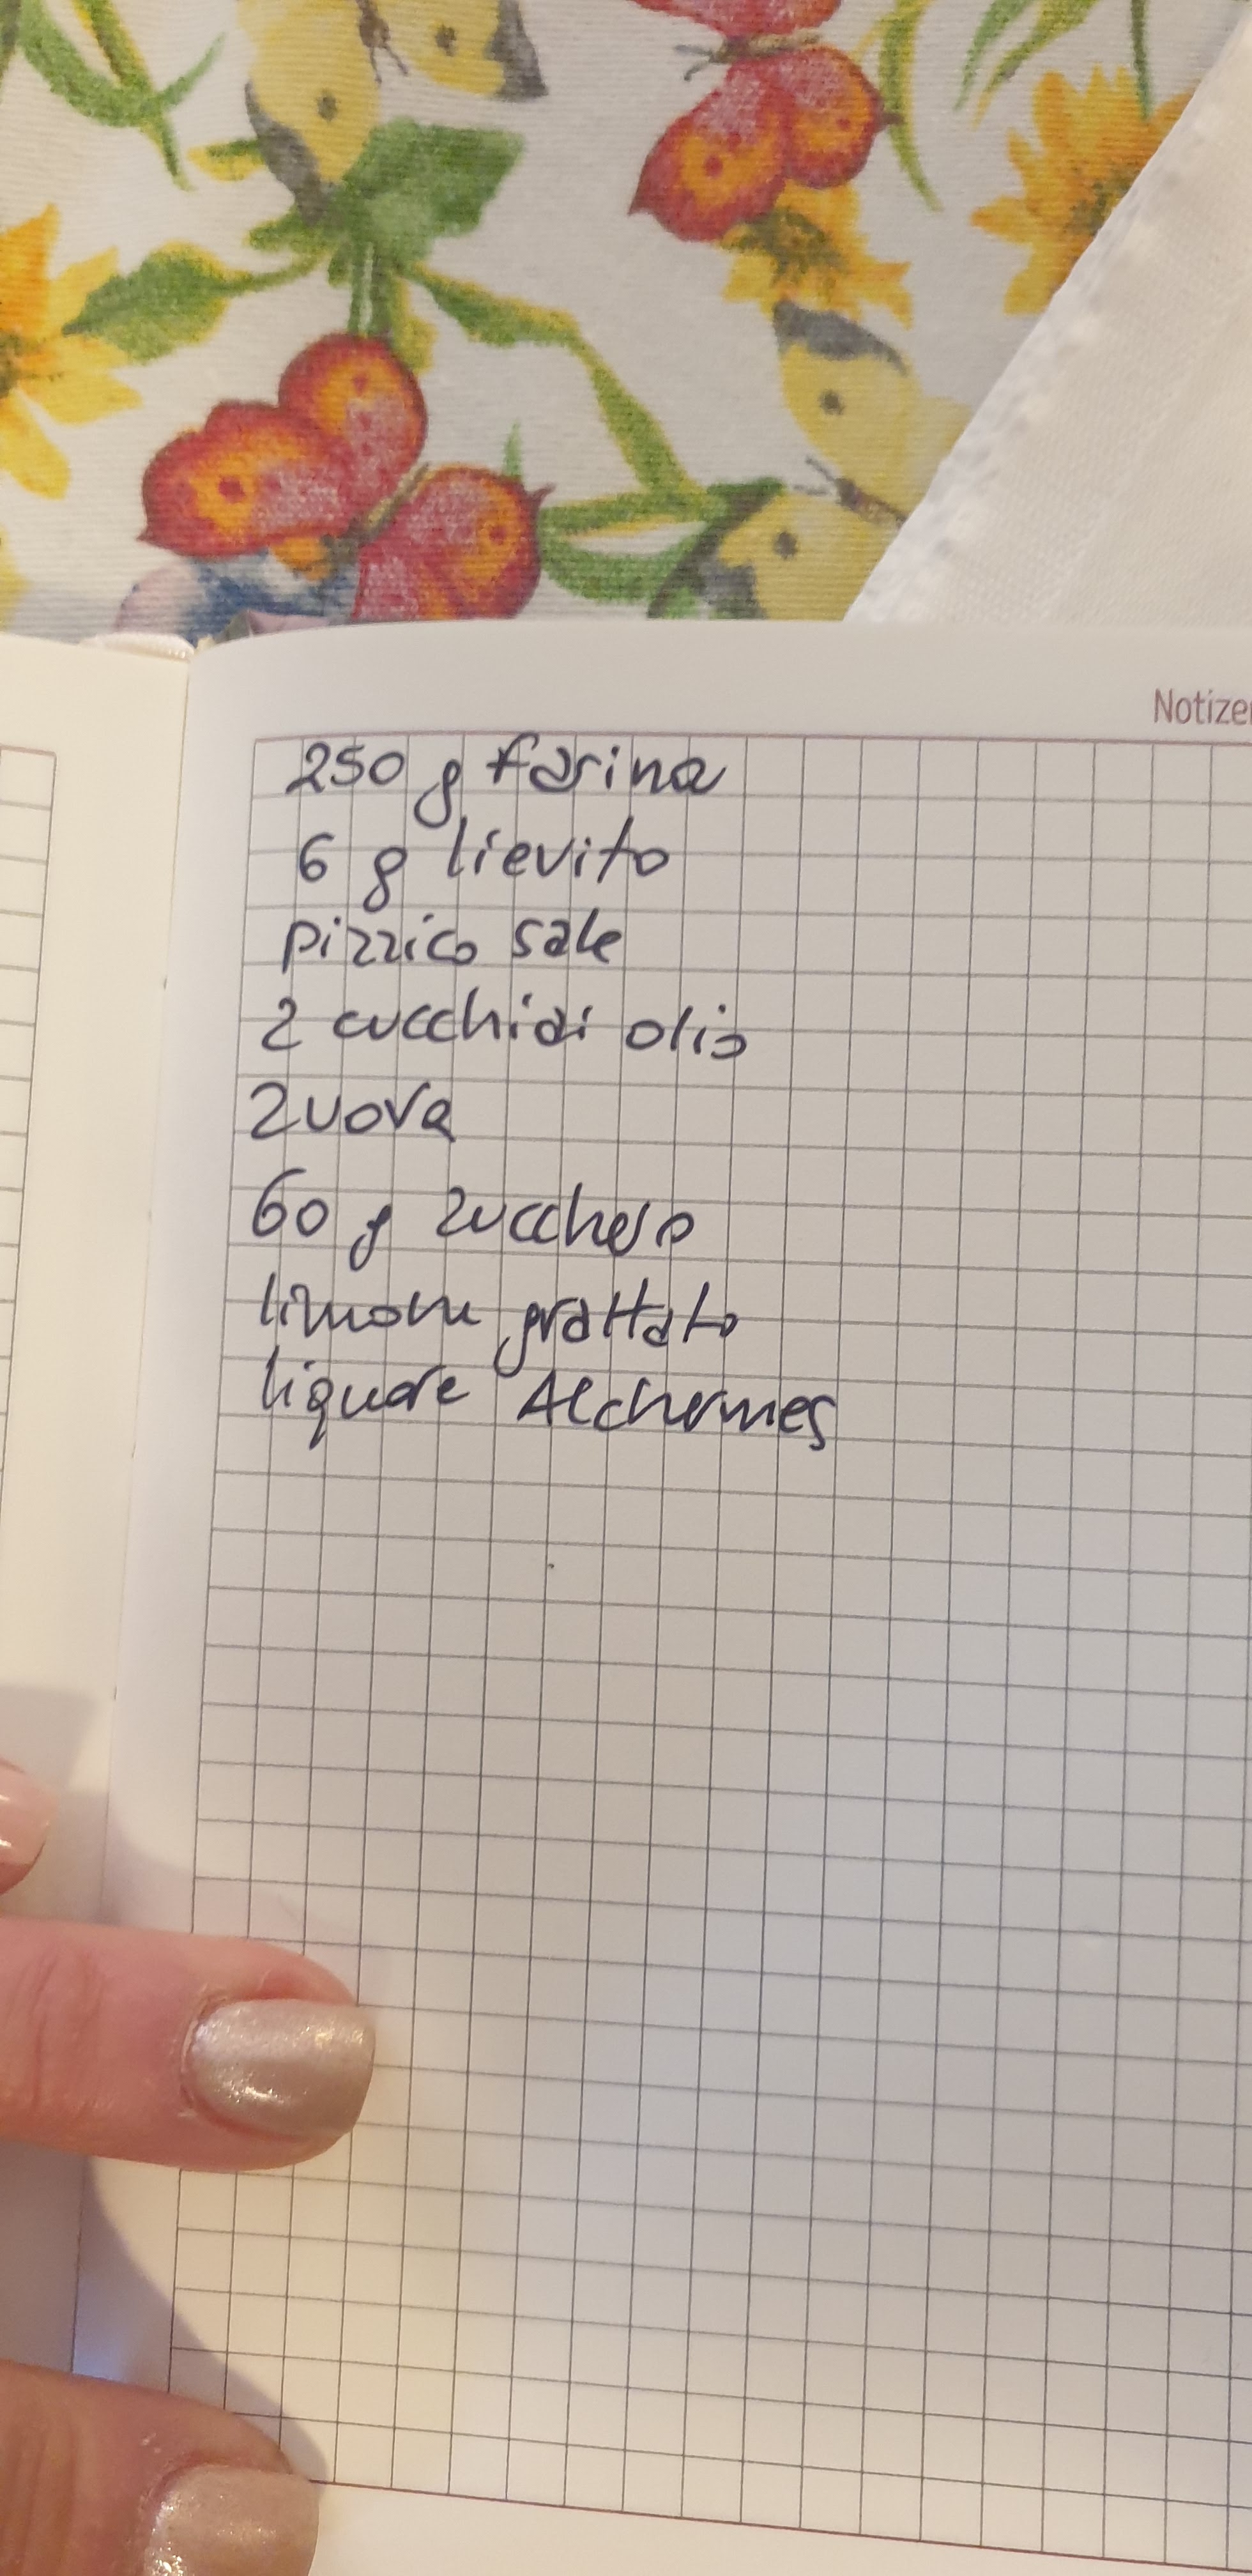 Notize
250 g farina
6 g lievito
pizzico sale
2 cucchiai olio
2 uova
60 g zucchero
limone grattato
liquore Alchermes